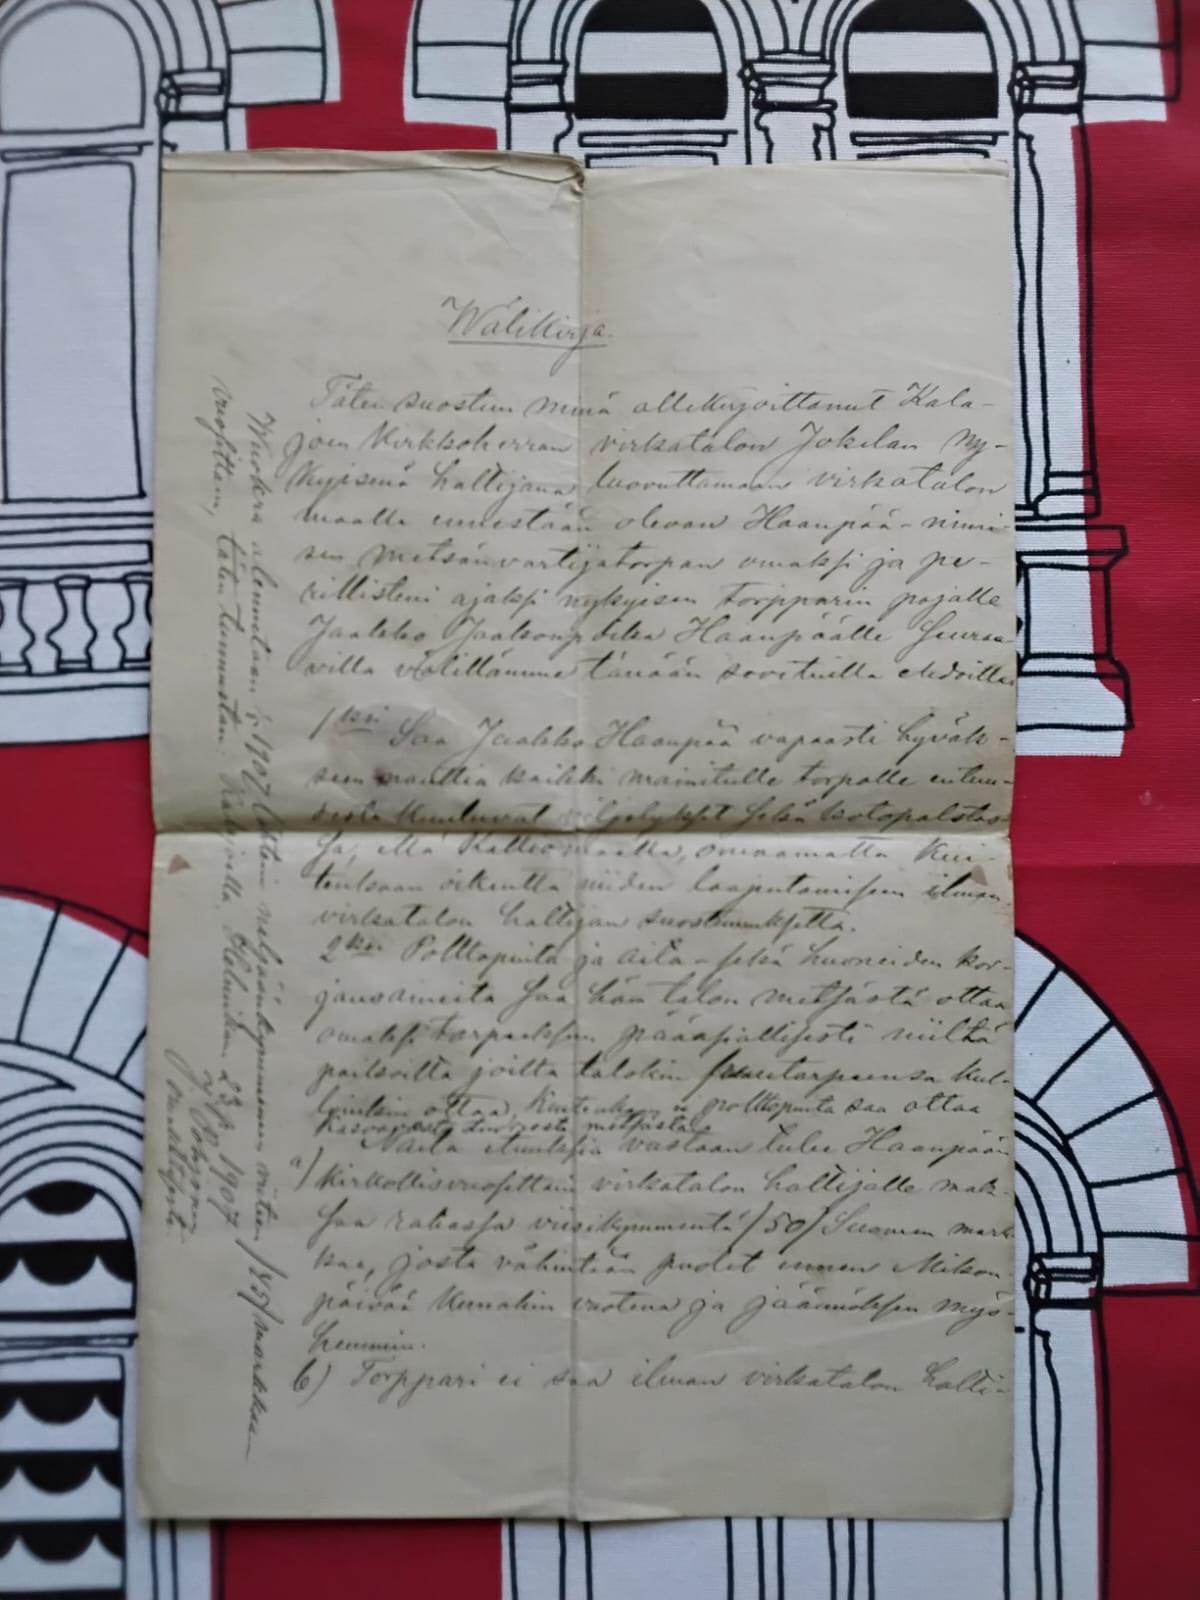 Wälikirja.
Täten suostun minä allekirjoittanut Kala-
joen Kirkkoherran virkatalon Jokelan ny-
kyisenä haltijana luovuttamaan virkatalon
maalla ennestään olevan Haanpää-nimi-
sen metsänvartijatorpan omaksi ja pe-
rillisteni ajaksi nykyisen torpparin pojalle
Jaakko Jaakonpoika Haanpäälle seuraa-
villa välillämme tänään sovituilla ehdoilla
1ksi Saa Jaakko Haanpää vapaasti hyväk-
seen nauttia kaikki mainitulle torpalle entuu-
desta kuuluvat viljelykset sekä kotopalstas-
sa, että Kalliomaalla, omaamatta kui-
tenkaan oikeutta niiden laajentamiseen ilman
virkatalon haltijan suostumuksetta.
2ksi Polttopuita ja aita- sekä huoneiden kor-
jausaineita saa hän talon metsästä ottaa
omaksi tarpeeksen pääasiallisesti niiltä
paikoilta joilta talokin puutarpeensa kul-
loinkin ottaa, kuitenkaan ei polttopuita saa ottaa
kasvavasta tuoreesta metsästä.
Näitä etuuksia vastaan tulee Haanpään
a) kirkollisvuosittain virkatalon haltijalle mak-
saa rahassa viisikymmentä /50/ Suomen mark-
kaa, josta vähintään puolet ennen Mikon-
päivää kunakin vuotena ja jäännöksen myö-
hemmin.
b) Torppari ei saa ilman virkatalon halti-
Wuokra alennetaan v. 1907 lukien neljäänkymmeneen viiteen /45/ markkaan
vuosittain, täten tunnustan. Kalajoella, Helmikuun 23 p. 1907